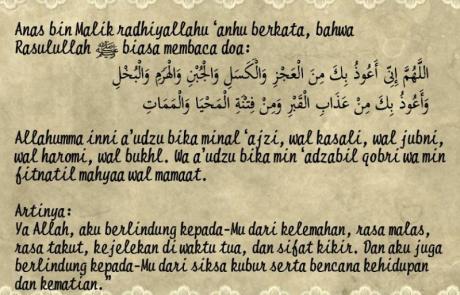 Anas bin Malik radhiyallahu ‘anhu berkata, bahwa
Rasulullah ﷺ biasa membaca doa:
اللَّهُمَّ إِنِّي أَعُوذُ بِكَ مِنَ الْعَجْزِ وَالْكَسَلِ وَالْجُبْنِ وَالْهَرَمِ وَالْبُخْلِ
وَأَعُوذُ بِكَ مِنْ عَذَابِ الْقَبْرِ وَمِنْ فِتْنَةِ الْمَحْيَا وَالْمَمَاتِ
Allahumma inni a’udzu bika minal ‘ajzi, wal kasali, wal jubni,
wal haromi, wal bukhl. Wa a’udzu bika min ‘adzabil qobri wa min
fitnatil mahyaa wal mamaat.
Artinya:
Ya Allah, aku berlindung kepada-Mu dari kelemahan, rasa malas,
rasa takut, kejelekan di waktu tua, dan sifat kikir. Dan aku juga
berlindung kepada-Mu dari siksa kubur serta bencana kehidupan
dan kematian.”